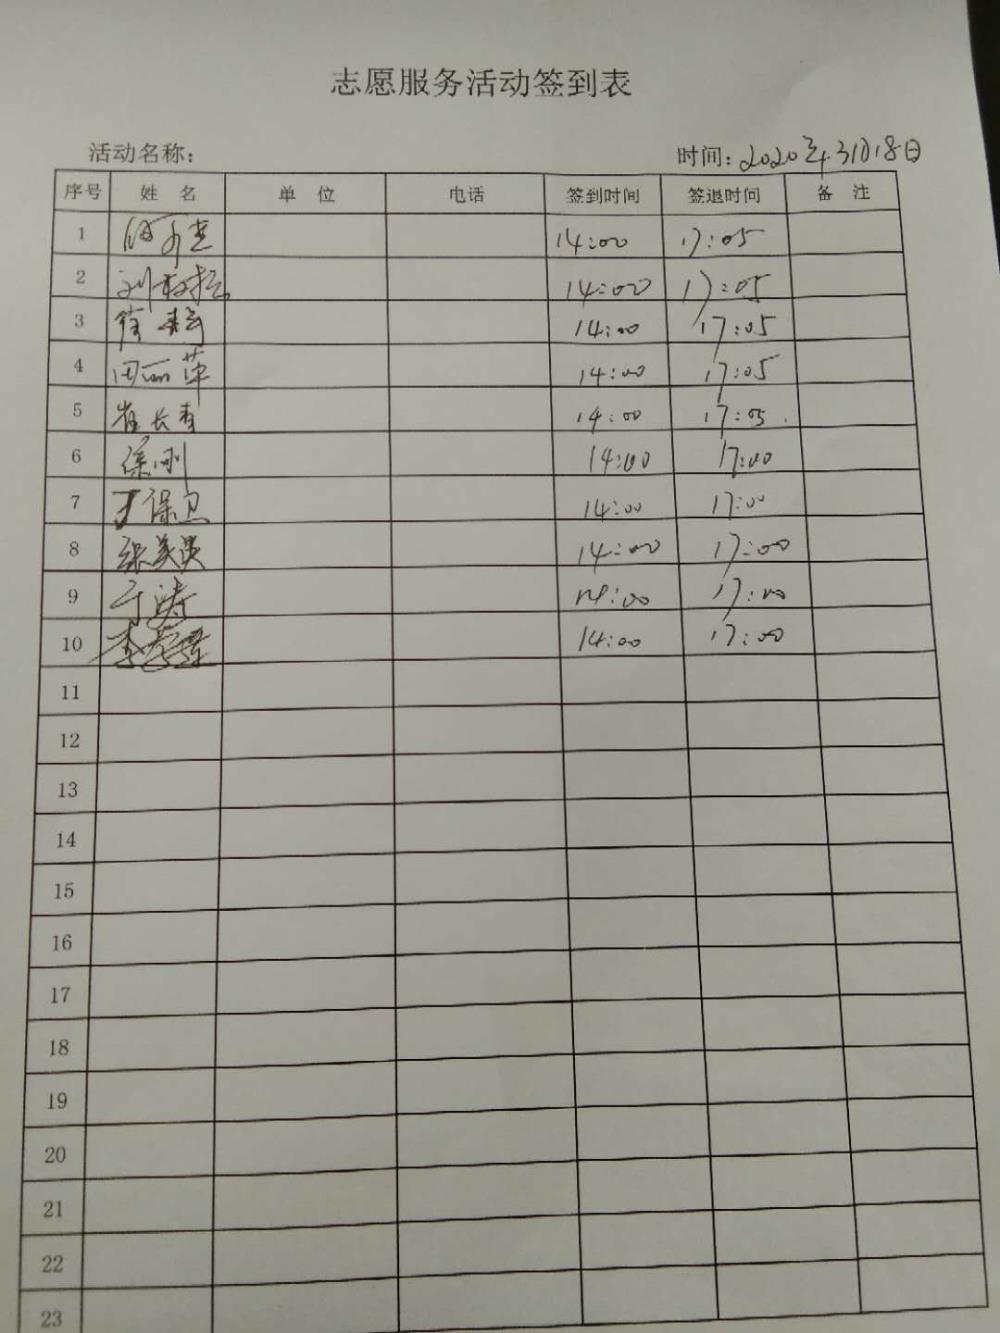 志愿服务活动签到表
活动名称: 时间: 2020年3月18日
序号 姓 名 单 位 电话 签到时间 签退时间 备 注
1 14:00 17:05
2 14:00 17:05
3 徐 14:00 17:05
4 田丽萍 14:00 17:05
5 崔长青 14:00 17:05
6 徐刚 14:00 17:00
7 丁保卫 14:00 17:00
8 张美 14:00 17:00
9 于涛 14:00 17:00
10 李 14:00 17:00
11
12
13
14
15
16
17
18
19
20
21
22
23